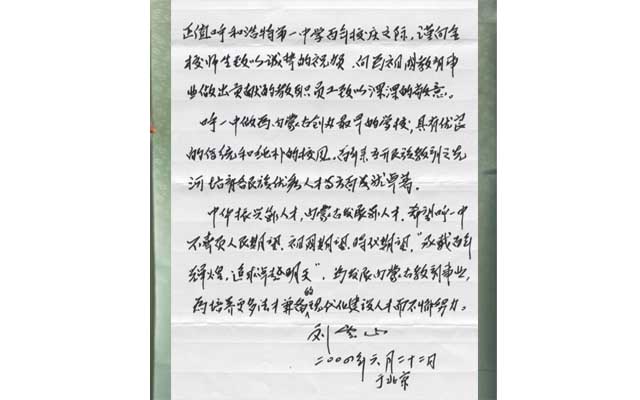 正值呼和浩特第一中学百年校庆之际，谨向全
校师生致以诚挚的祝贺，向为祖国教育事
业做出贡献的教职员工致以深深的敬意。
呼一中做为内蒙古创办最早的学校，具有优良
的传统和纯朴的校风。百年来开民族教育之先
河，培育各民族优秀人才等方面成就卓著。
中华振兴靠人才，内蒙古发展靠人才。希望呼一中
不辜负人民期望、祖国期望、时代期望，“承载百年
辉煌，追求卓越明天”，为发展内蒙古教育事业，
为培养更多德才兼备的现代化建设人才而不懈努力。
刘云山
二〇〇四年六月二十二日
于北京